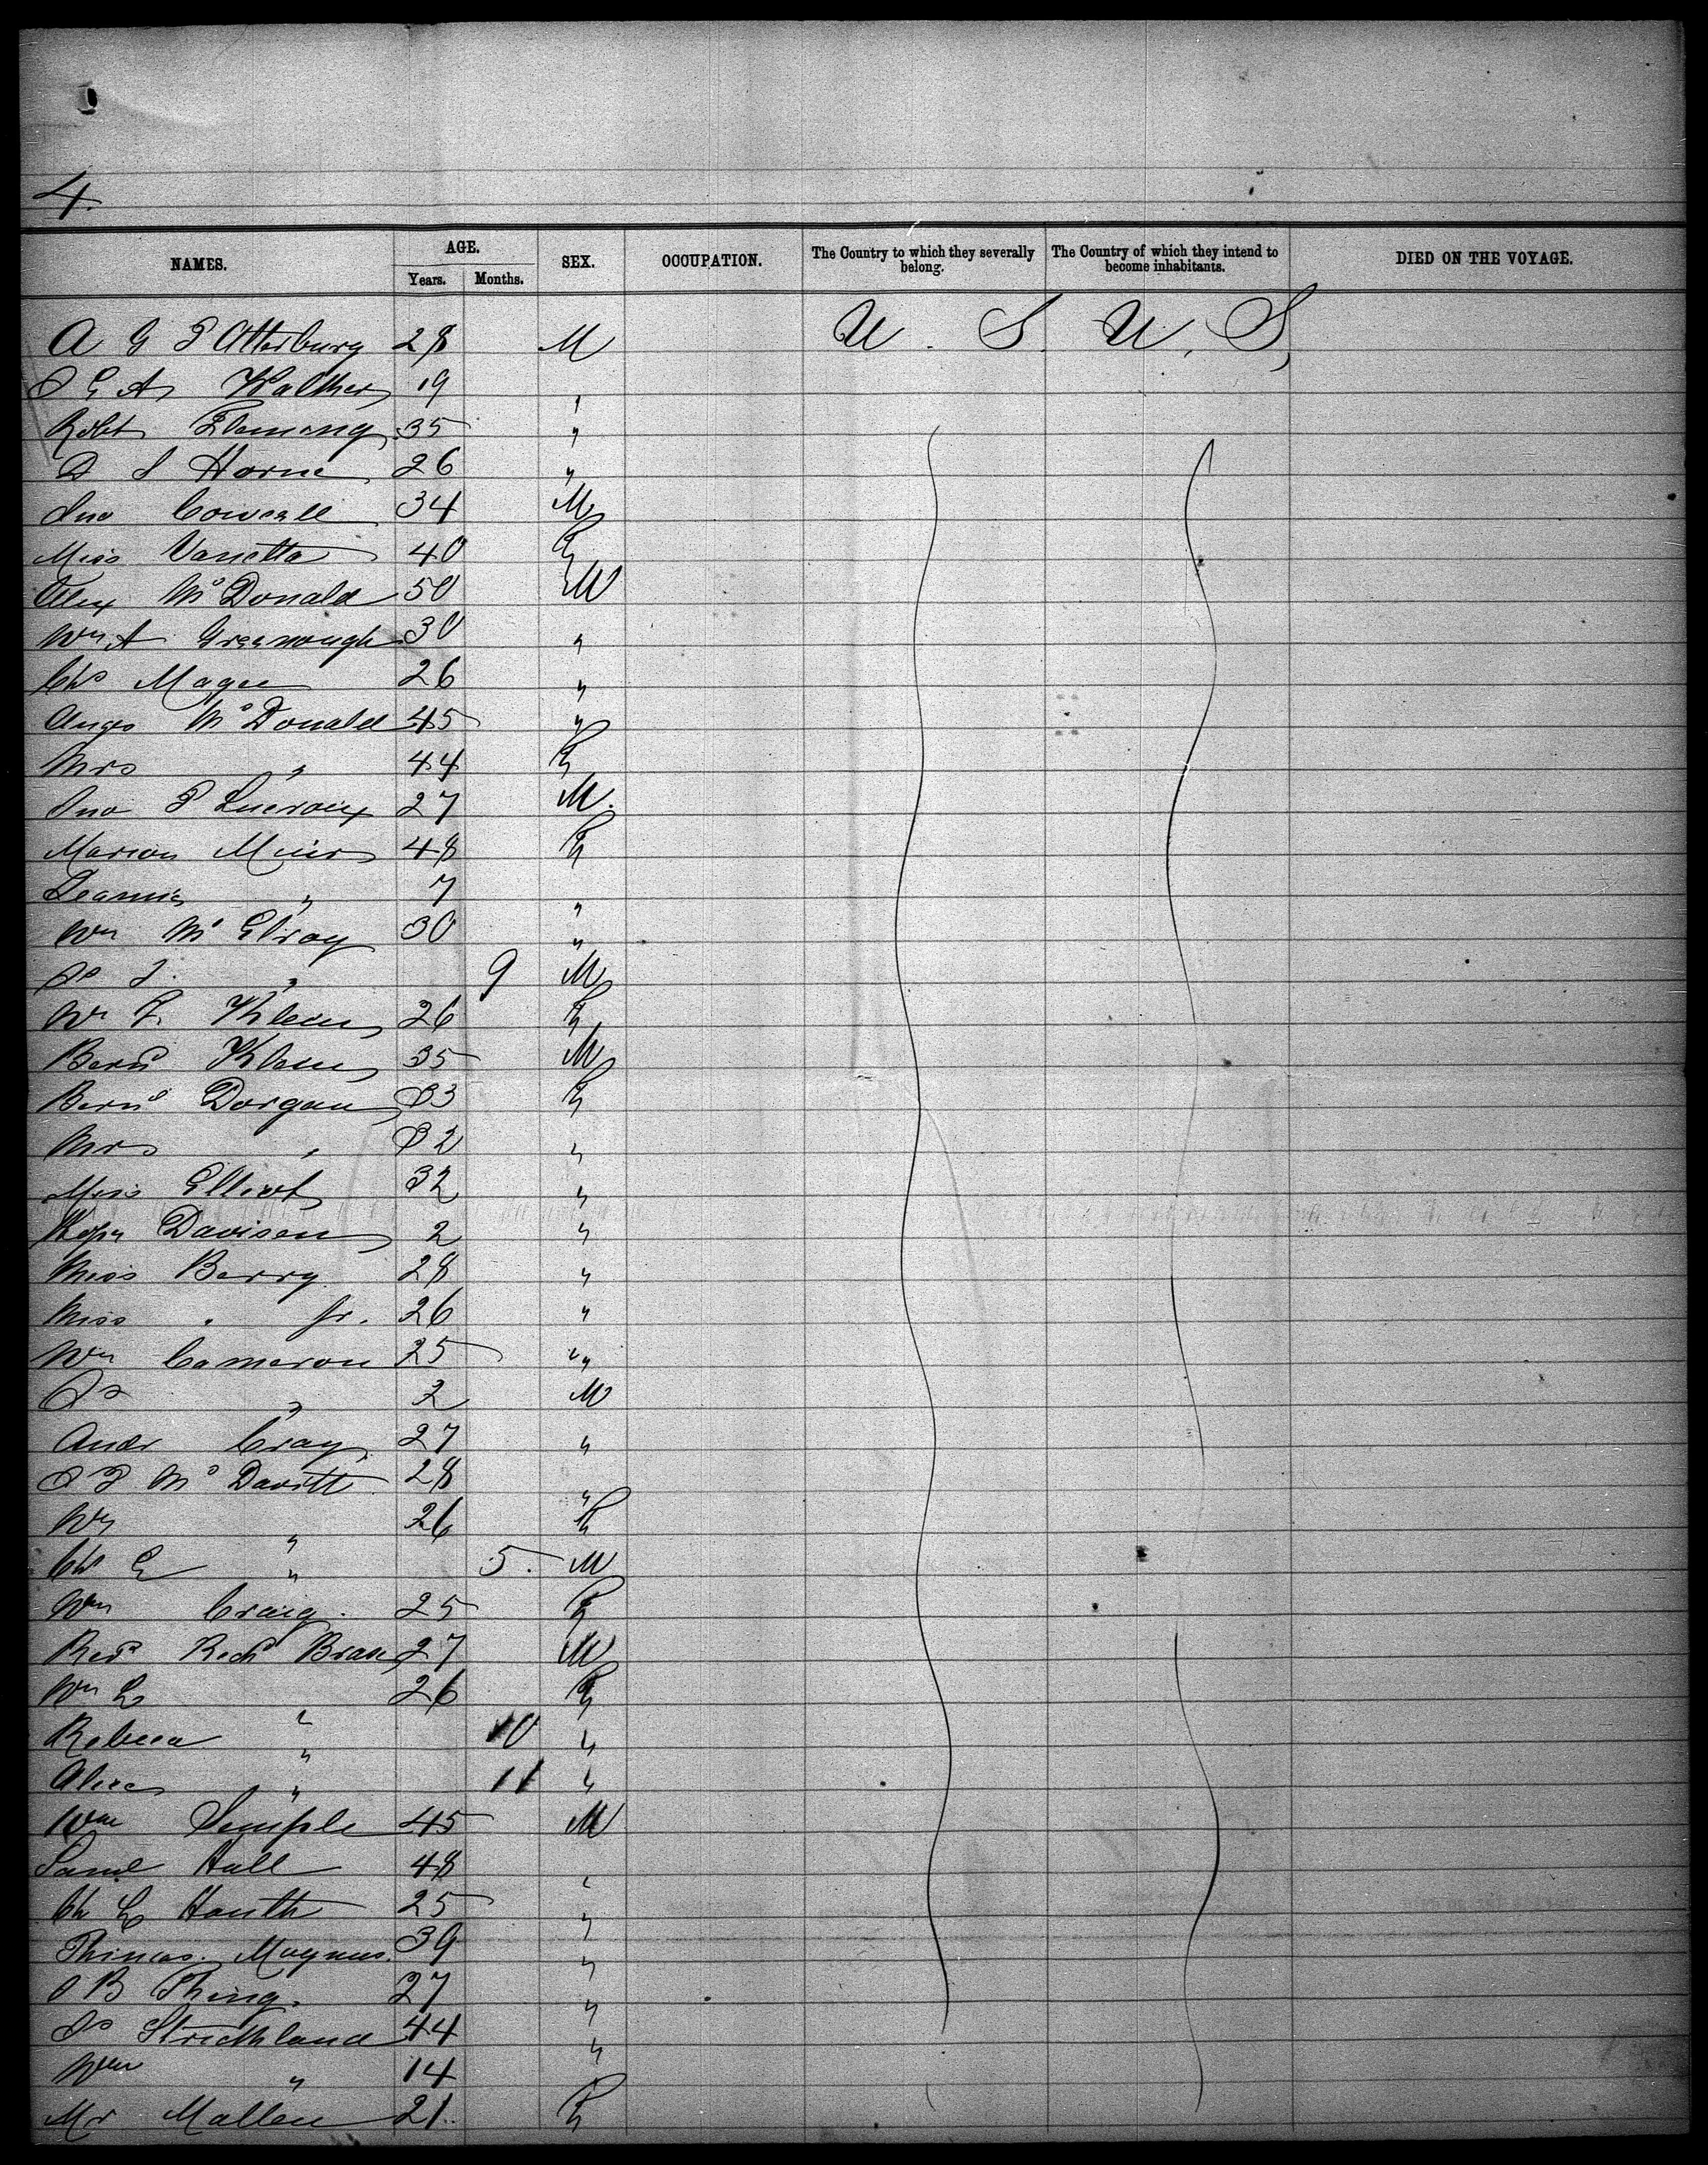 4.
NAMES. AGE. Years. Months. SEX. OCCUPATION. The Country to which they severally belong. The Country of which they intend to become inhabitants. DIED ON THE VOYAGE.
A G P Atterbury 28 M U. S. U. S,
Walker 19 "
Robt Fleming 35 "
S Horne 26 "
Jno 34 M
Miss Vanetta 40 F
Alex McDonald 50 M
Wm A Greenough 30 "
Chs Magee 26 "
Angs McDonald 45 "
Mrs " 44 F
Jno P 27 M.
Marion Muir 48 F
Jeannie " 7 "
Wm McElroy 30 "
" 9 M
26 F
Klein 35 M
Dorgan 33 F
Mrs " 32 "
Miss Elliot 32 "
Davisen 2 "
Miss Berry 28 "
Miss " Jr. 26 "
Wm Cameron 25 "
Js " 2 M
Andr Cray 27 "
McDavitt 28 "
" 26 F
Ch E " 5. M
Wm Craig. 25 F
27 M
26 F
Rebeca " 10 "
Alice " 11 "
Wm Semple 45 M
Saml Hall 48 "
Ch 25 "
Magnus. 39 "
B Thing. 27 "
Js Strickland 44 "
Wm " 14 "
Mr Mallen 21. F